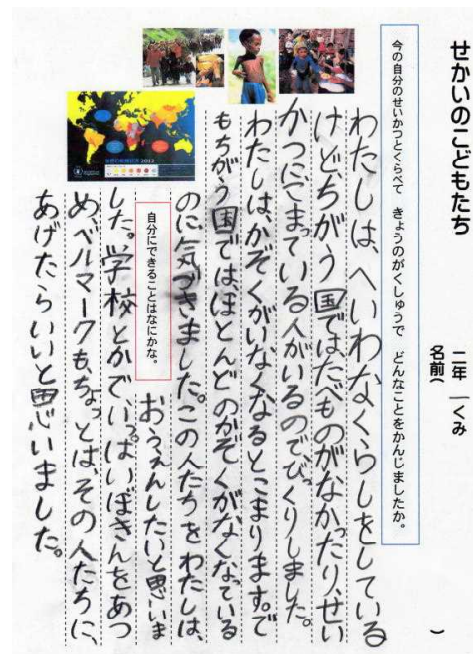 せかいのこどもたち 二年 一くみ
名前( )
今の自分のせいかつとくらべて きょうのがくしゅうで どんなことをかんじましたか。
わたしは、へいわなくらしをしている
けど、ちがう国ではたべものがなかったり、せい
かつにこまっている人がいるので、びっくりしました。
わたしは、かぞくがいなくなるとこまります。で
もちがう国ではほとんどのかぞくがなくなっている
のに気づきました。この人たちをわたしは、
自分にできることはなにかな。
おうえんしたいと思いま
した。学校とかで、いっぱいぼきんをあつ
め、ベルマークも、ちょっとは、その人たちに、
あげたらいいと思いました。